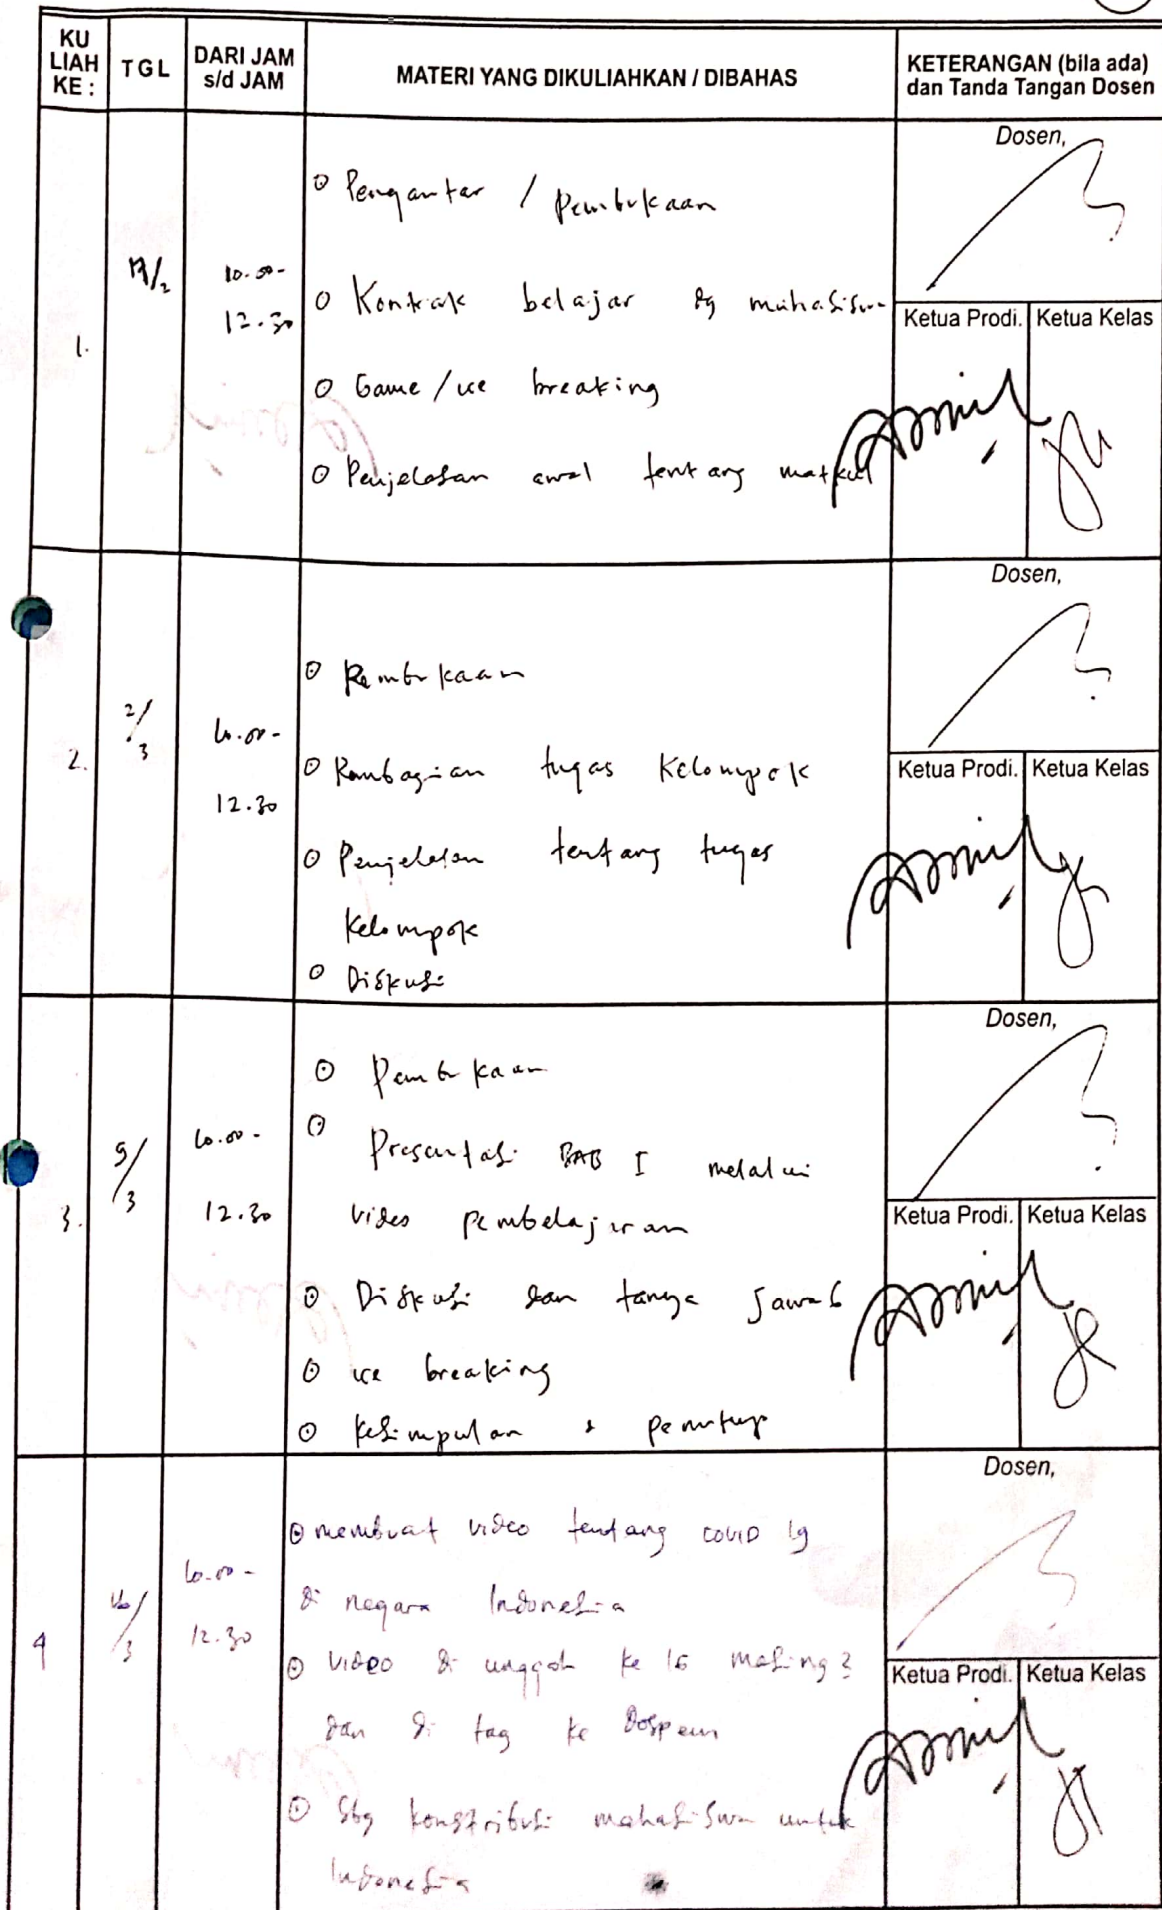 KU
LIAH
KE :
TGL
DARI JAM
s/d JAM
MATERI YANG DIKULIAHKAN / DIBAHAS
KETERANGAN (bila ada)
dan Tanda Tangan Dosen
1.
10.00-
12.30
Pengantar / Pembukaan
Kontrak belajar dg mahasiswa
Game / ice breaking
Penjelasan awal tentang matkul
Dosen,
Ketua Prodi.
Ketua Kelas
2.
2/3
10.00-
12.30
Pembukaan
Pembagian tugas Kelompok
Penjelasan tentang tugas
Kelompok
Diskusi
Dosen,
Ketua Prodi.
Ketua Kelas
3.
9/3
10.00-
12.30
Pembukaan
Presentasi BAB I melalui
video pembelajaran
Diskusi dan tanya Jawab
ice breaking
Kesimpulan & penutup
Dosen,
Ketua Prodi.
Ketua Kelas
4
16/3
10.00-
12.30
membuat video tentang COVID 19
di negara Indonesia
Video di unggah ke IG masing2
dan di tag ke Dospem
Sbg konstribusi mahasiswa untuk
Indonesia
Dosen,
Ketua Prodi.
Ketua Kelas